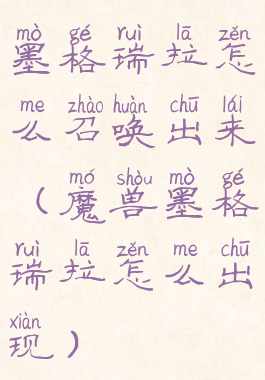 mò gé ruì lā zěn
墨格瑞拉怎
me zhào huàn chū lái
么召唤出来
mó shòu mò gé
（魔兽墨格
ruì lā zěn me chū
瑞拉怎么出
xiàn
现）